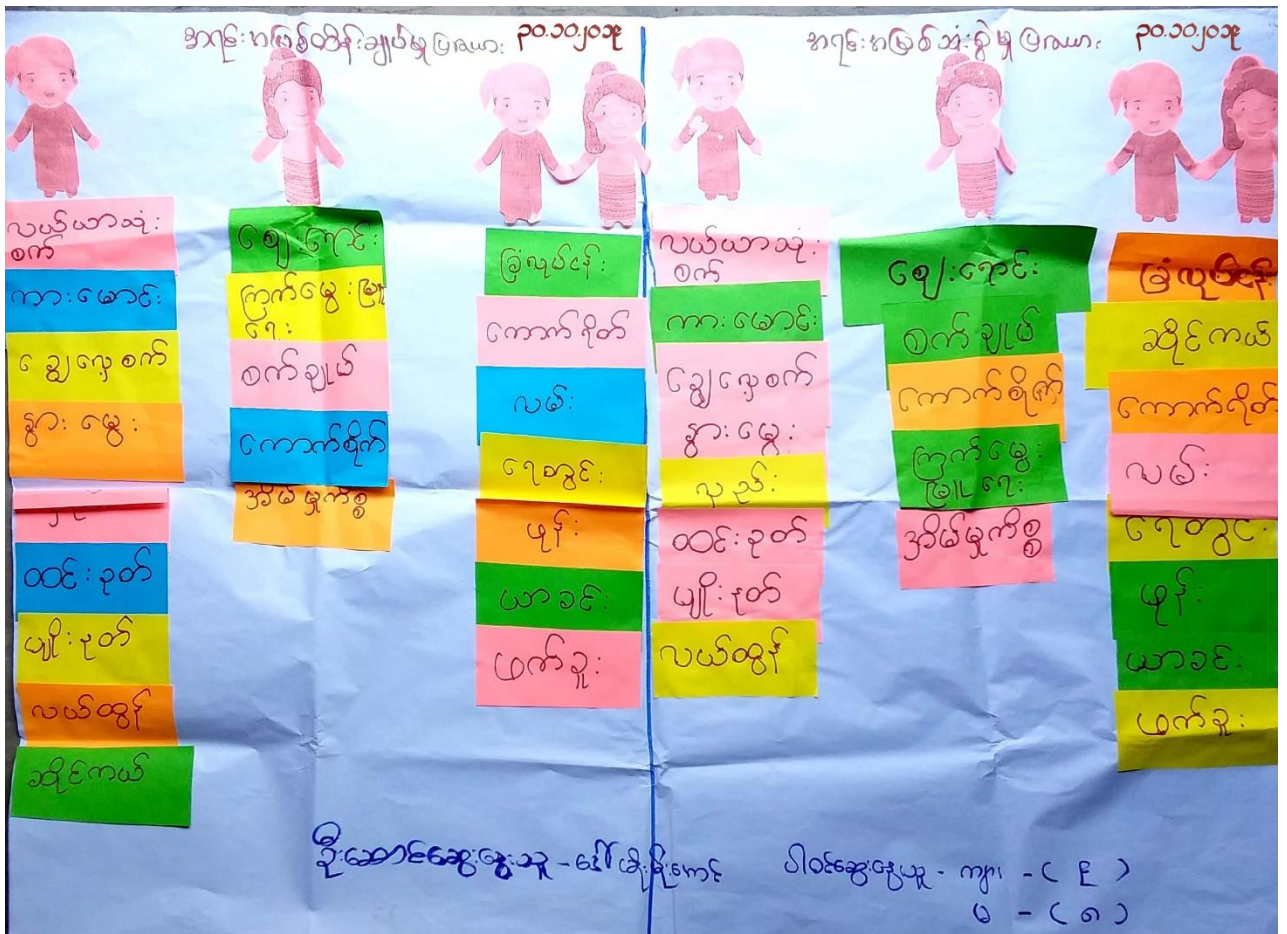 အရင်းအမြစ်ထိန်းချုပ်မှု ပြဿယား ၃၀.၁၀.၂၀၁၉
လယ်ယာသုံး
စက်
ကားမောင်း
ချွေလှေ့စက်
နွားမွေး
ထင်းခုတ်
မျိုးနုတ်
လယ်ထွန်
ဆိုင်ကယ်
ဈေးရောင်း
ကြက်မွေးမြူ
ရေး
စက်ချုပ်
ကောက်စိုက်
အိမ်မှုကိစ္စ
ခြံလုပ်ငန်း
ကောက်ရိတ်
လမ်း
ရေတွင်း
ဖုန်း
ယာခင်း
ဖက်ခူး
အရင်းအမြစ်သုံးစွဲမှု ပြဿယား ၃၀.၁၀.၂၀၁၉
လယ်ယာသုံး
စက်
ကားမောင်း
ချွေလှေ့စက်
နွားမွေး
လှည်း
ထင်းခုတ်
မျိုးနုတ်
လယ်ထွန်
ဈေးရောင်း
စက်ချုပ်
ကောက်စိုက်
ကြက်မွေး
မြူရေး
အိမ်မှုကိစ္စ
ခြံလုပ်ငန်း
ဆိုင်ကယ်
ကောက်ရိတ်
လမ်း
ရေတွင်း
ဖုန်း
ယာခင်း
ဖက်ခူး
ဦးဆောင်ဆွေးနွေးသူ - ဒေါ်
ပါဝင်ဆွေးနွေးသူ - ကျား - ( ၉ )
မ - ( ၈ )